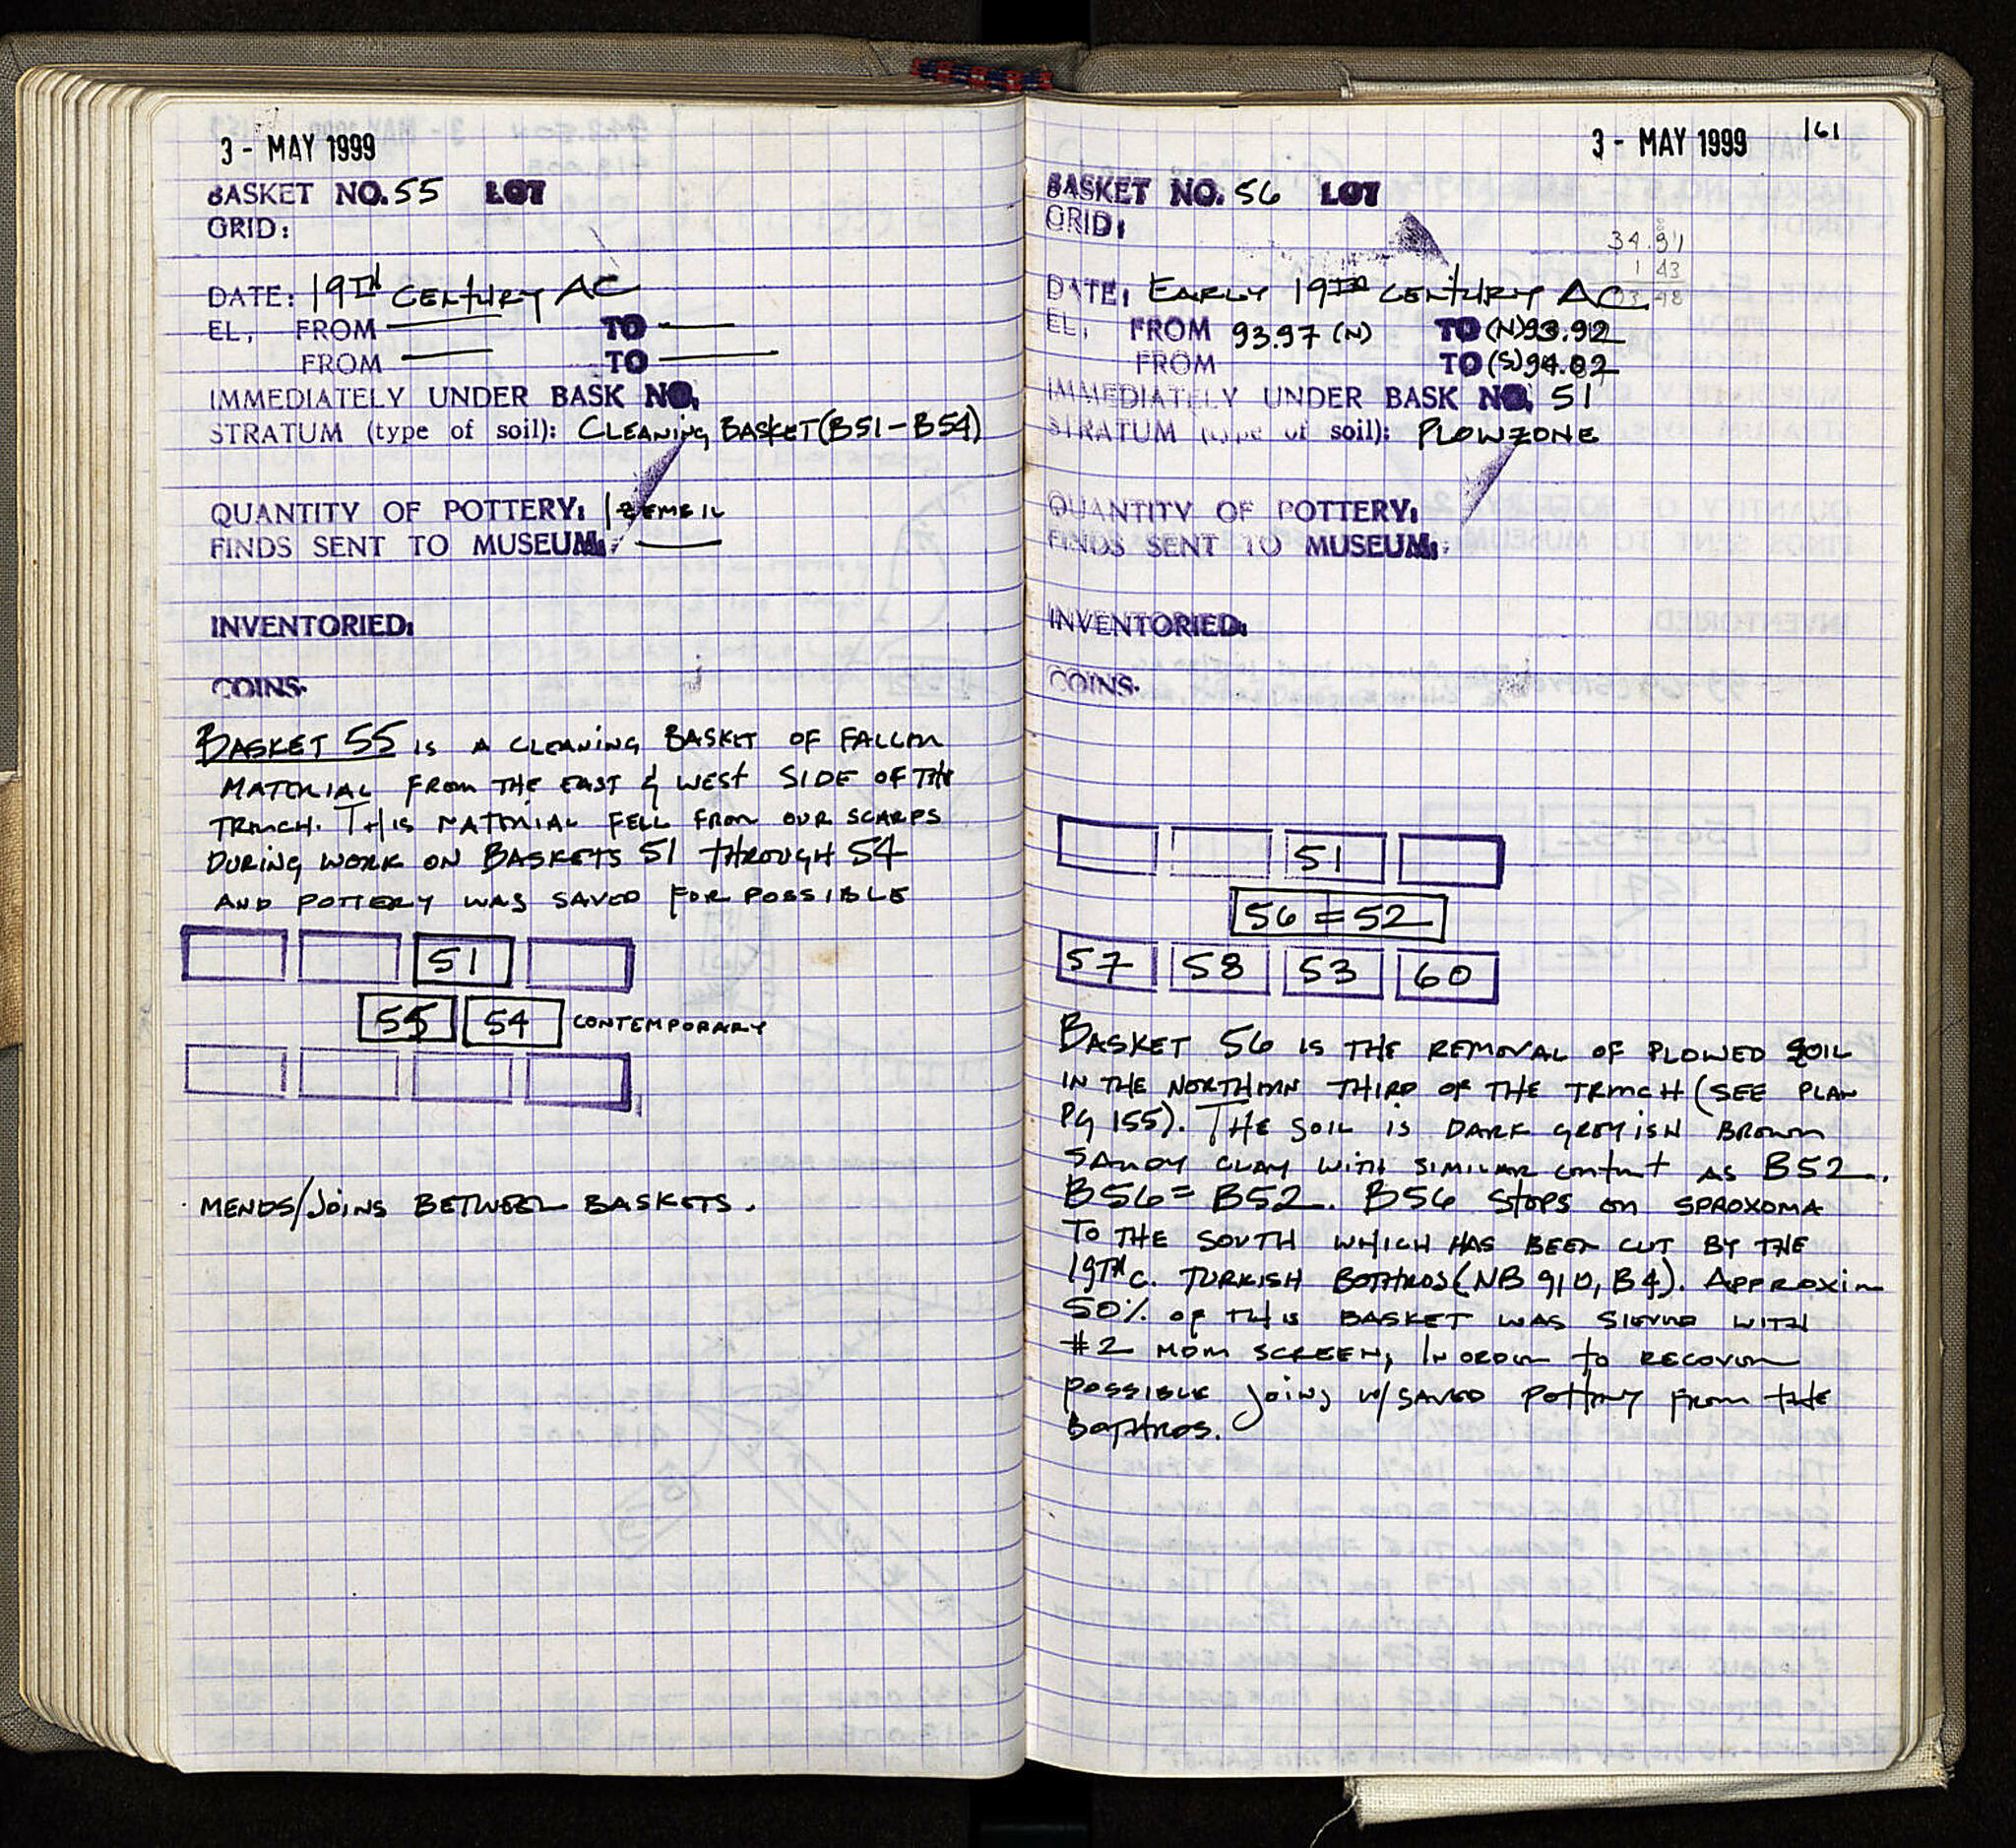 3 - MAY 1999
BASKET NO. 55 LOT
GRID:
DATE: 19TH CENTURY AC
EL, FROM — TO —
FROM — TO —
IMMEDIATELY UNDER BASK NO.
STRATUM (type of soil): CLEANING BASKET (B51-B54)
QUANTITY OF POTTERY: 1 ZEMBIL
FINDS SENT TO MUSEUM: —
INVENTORIED:
COINS.
BASKET 55 IS A CLEANING BASKET OF FALLEN
MATERIAL FROM THE EAST & WEST SIDE OF THE
TRENCH. THIS MATERIAL FELL FROM OUR SCARPS
DURING WORK ON BASKETS 51 THROUGH 54
AND POTTERY WAS SAVED FOR POSSIBLE
51
55 54 CONTEMPORARY
MENDS/JOINS BETWEEN BASKETS.
3 - MAY 1999 161
BASKET NO. 56 LOT
GRID:
34.91
1 43
DATE: EARLY 19TH CENTURY AC.
EL, FROM 93.97 (N) TO (N) 93.92
FROM TO (S) 94.02
IMMEDIATELY UNDER BASK NO. 51
STRATUM (type of soil): PLOWZONE
QUANTITY OF POTTERY:
FINDS SENT TO MUSEUM:
INVENTORIED:
COINS.
51
56 = 52
57 58 53 60
BASKET 56 IS THE REMOVAL OF PLOWED SOIL
IN THE NORTHERN THIRD OF THE TRENCH (SEE PLAN
PG 155). THE SOIL IS DARK GREYISH BROWN
SANDY CLAY WITH SIMILAR CONTENT AS B52.
B56 = B52. B56 STOPS ON SPROXOMA
TO THE SOUTH WHICH HAS BEEN CUT BY THE
19TH C. TURKISH BOTHROS (NB 910, B4). APPROXIM
50% OF THIS BASKET WAS SIEVED WITH
#2 MOM SCREEN, IN ORDER TO RECOVER
POSSIBLE JOINS W/SAVED POTTERY FROM THE
BOTHROS.